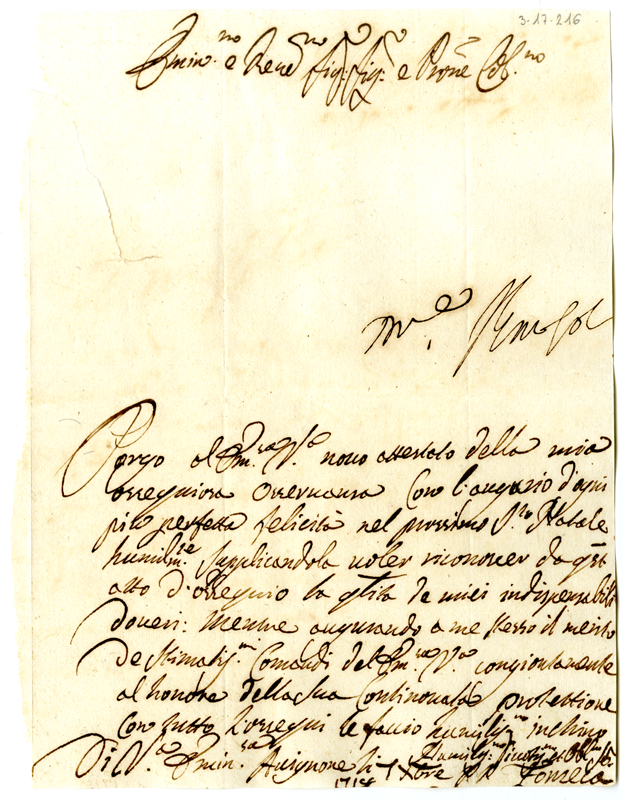 3-17-216
Emin.mo e Rev.mo Sig.r Sig.r e Prone Col.mo
Porgo al Em.za V.ra novo attestato della mia
ossequiosa osservanza con l'augurio d'ogni
più perfetta felicità nel prossimo S.to Natale
humilm.te supplicandola voler riconoscer da q.sto
atto d'ossequio la de miei indispensabili
doveri: Mentre augurando a me stesso il merito
de stimatis.mi Comandi del Em.za V.ra congiontamente
al honore della sua continovata protettione
con tutto l'ossequi le faccio humilis.mo inchino
Di V.ra Emin.za Avignone li Xbre
1718
Humilis.mo